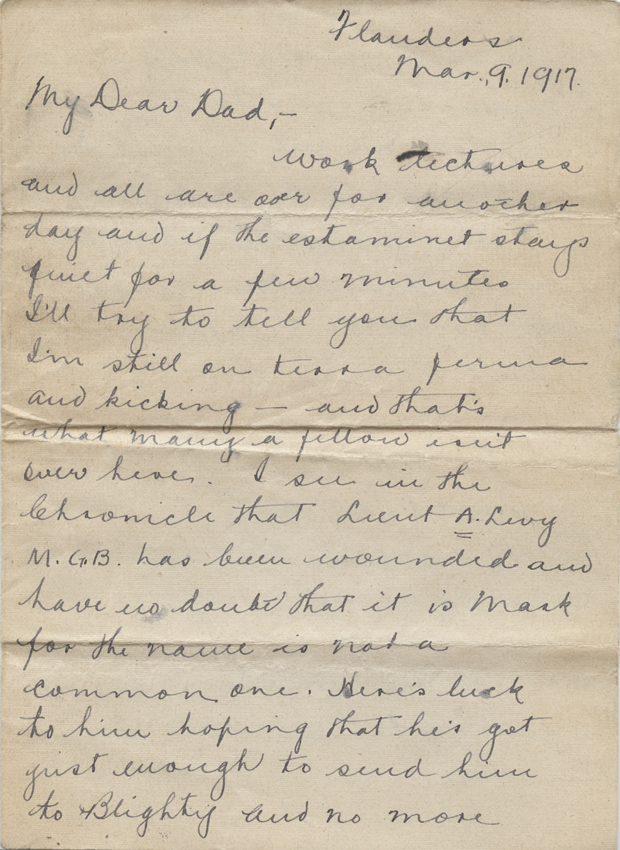 Flanders
Mar. 9. 1917.
My Dear Dad,-
Work lectures
and all are oer for another
day and if the estaminet stays
quiet for a few minutes
I'll try to tell you that
I'm still on terra ferma
and kicking — and that's
what many a fellow isn't
over here. I see in the
Chronicle that Lieut A. Levy
M.G.B. has been wounded and
have no doubt that it is Mark
for the name is not a
common one. Here's luck
to him hoping that he's got
just enough to send him
to Blighty and no more